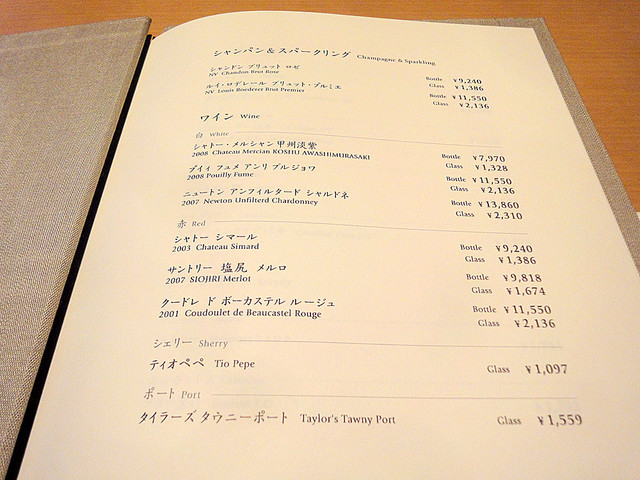 シャンパン & スパークリング Champagne & Sparkling
シャンドン ブリュット ロゼ
NV Chandon Brut Rose
Bottle ¥9,240
Glass ¥1,386
ルイ・ロデレール ブリュット・プルミエ
NV Louis Roederer Brut Premier
Bottle ¥11,550
Glass ¥2,136
ワイン Wine
白 White
シャトー・メルシャン 甲州淡紫
2008 Chateau Mercian KOSHU AWASHIMURASAKI
Bottle ¥7,970
Glass ¥1,328
プイィ フュメ アンリ ブルジョワ
2008 Pouilly Fume
Bottle ¥11,550
Glass ¥2,136
ニュートン アンフィルタード シャルドネ
2007 Newton Unfilterd Chardonney
Bottle ¥13,860
Glass ¥2,310
赤 Red
シャトー シマール
2003 Chateau Simard
Bottle ¥9,240
Glass ¥1,386
サントリー 塩尻 メルロ
2007 SIOJIRI Merlot
Bottle ¥9,818
Glass ¥1,674
クードレ ド ボーカステル ルージュ
2001 Coudoulet de Beaucastel Rouge
Bottle ¥11,550
Glass ¥2,136
シェリー Sherry
ティオペペ Tio Pepe
Glass ¥1,097
ポート Port
タイラーズ タウニーポート Taylor's Tawny Port
Glass ¥1,559